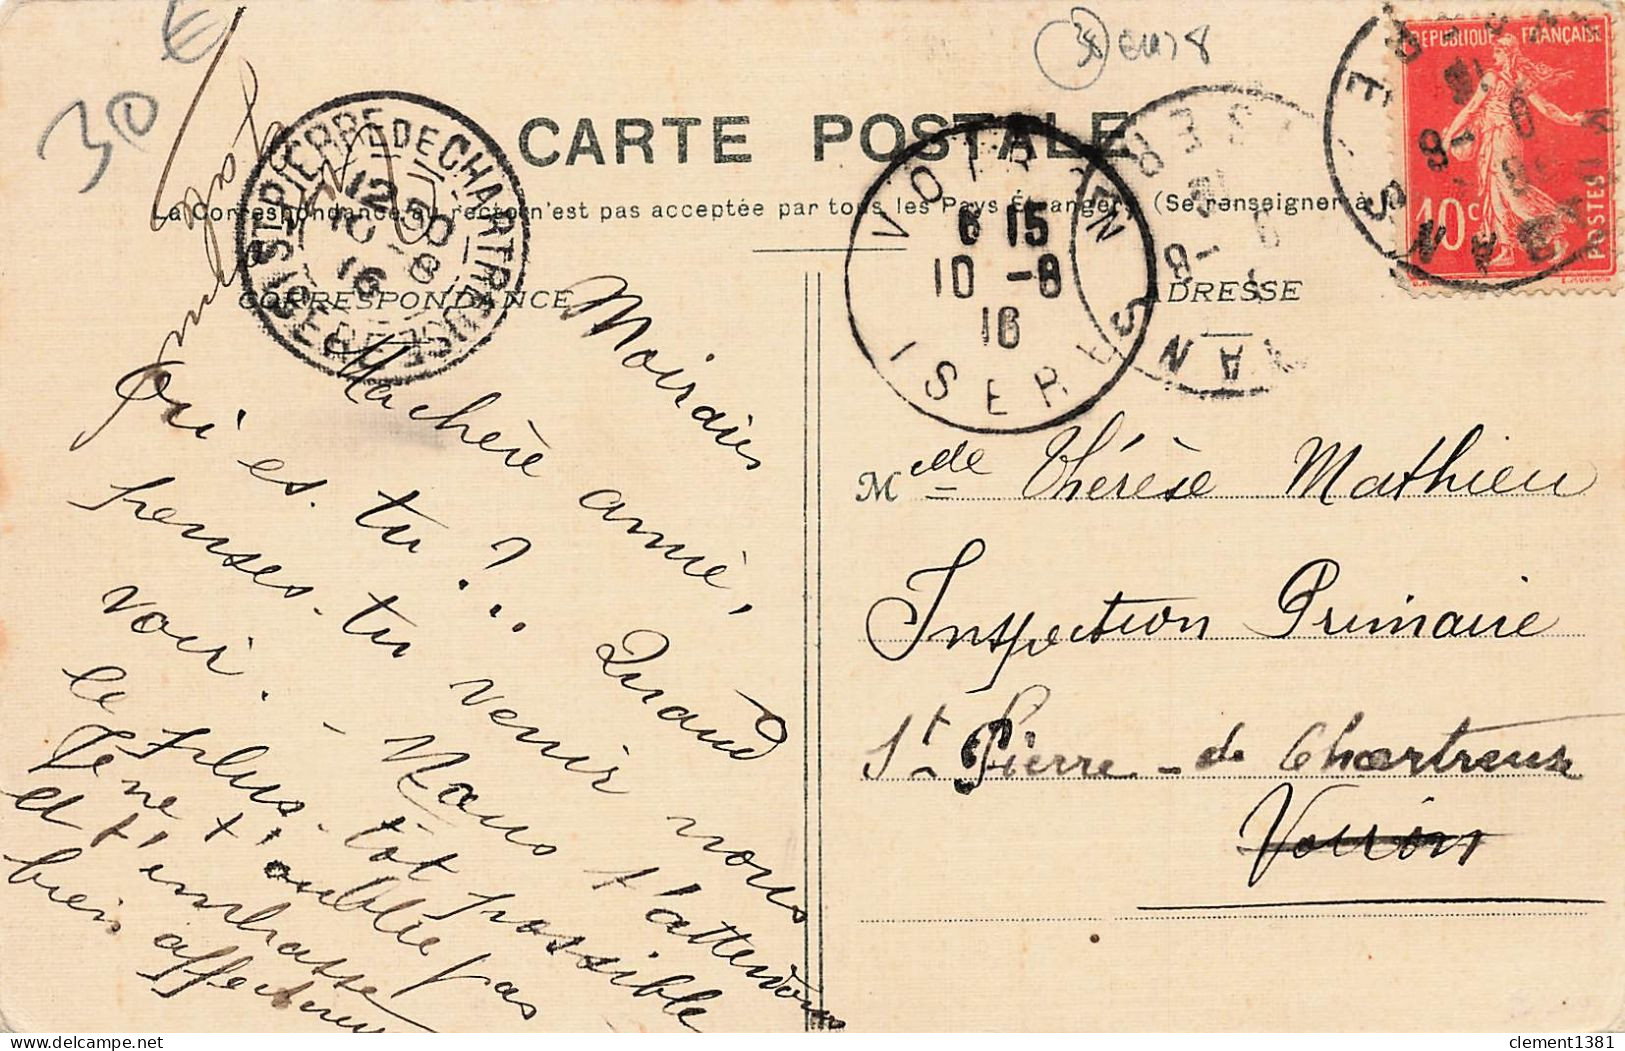 30 €
38
CARTE POSTALE
La Correspondance au recto n'est pas acceptée par tous les Pays Étrangers (Se renseigner à
CORRESPONDANCE
ADRESSE
ST PIERRE DE CHARTREUSE
12 50
10 -8
16
ISERE
VOIRON
6 15
10 -8
16
ISERE
REPUBLIQUE FRANÇAISE
10c
POSTES
Moirans
Ma chère amie,
Qui es-tu ? Quand
penses-tu venir nous
voir. - Nous t'attendons
le plus-tôt possible
Je ne t'oublie pas
et t'embrasse
bien affectueu
Melle Thérèse Mathieu
Inspection Primaire
St Pierre-de Chartreuse
Voiron
clement1381